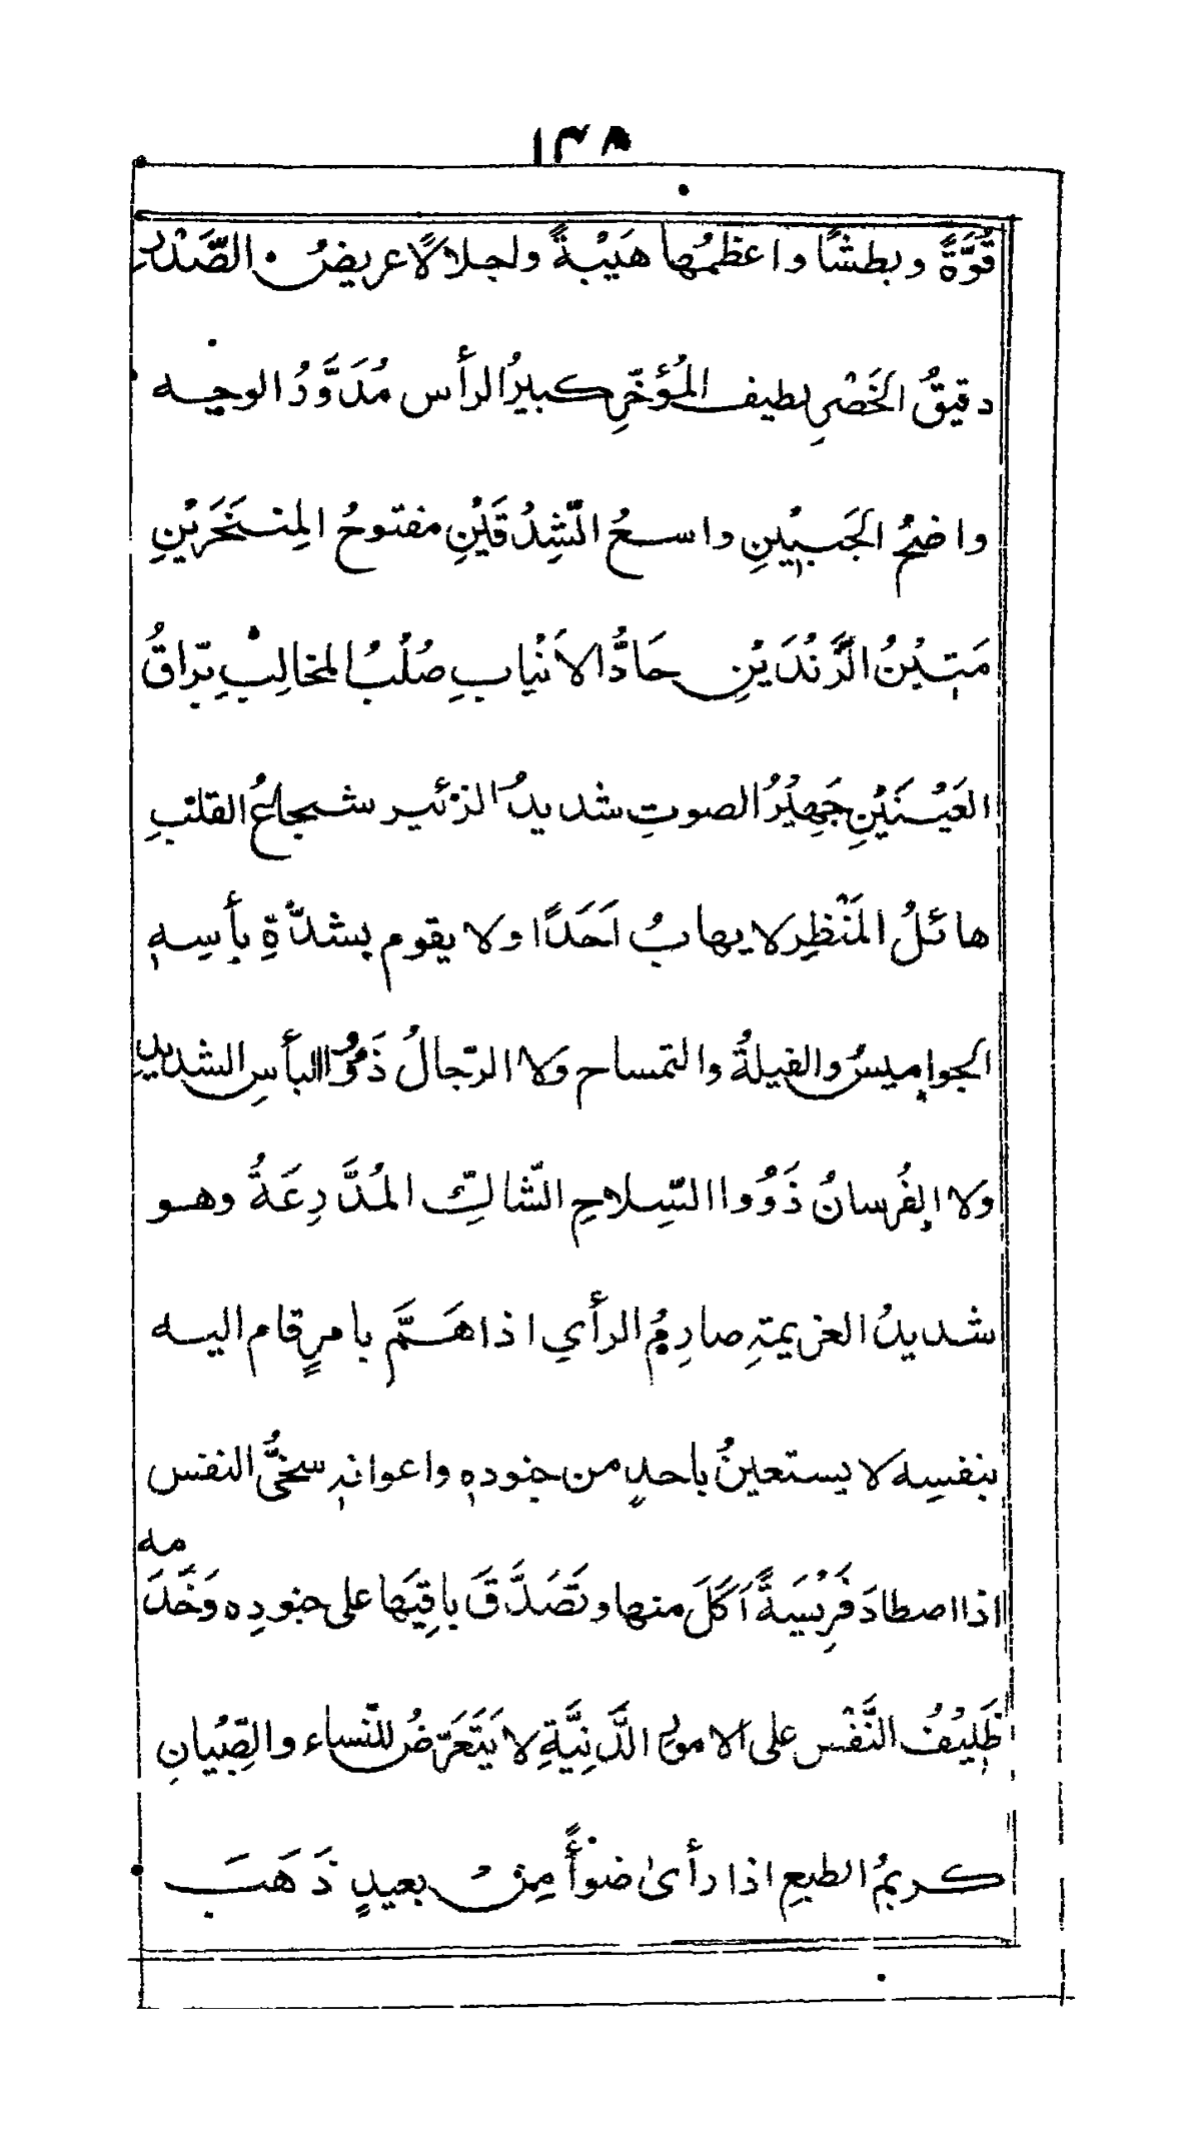 ١٣٨
قُوَّةً وبطشًا واعظمُها هَيْبةً واجلالًا عريضُ الصَّدْرِ
دقيقُ الخَصْرِ لطيف المُؤخّرِ كبيرُ الرأس مُدَوَّرُ الوجه
واضحُ الجَبِيْنِ واسعُ الشِّدْقَيْنِ مفتوحُ المِنْخَرَيْنِ
مَتِيْنُ الزَّنْدَيْنِ حَادُّ الاَنْيابِ صُلْبُ المخالِبِ برّاقُ
العَيْنَيْنِ جَهِيْرُ الصوتِ شديدُ الزئير شجاعُ القلبِ
هائلُ المَنْظِر لا يهابُ اَحَدًا ولا يقوم بشدَّةِ بأسِهٖ
الجواميسُ والفيلةُ والتمساح ولا الرّجالُ ذَوُو البأسِ الشديدِ
ولا الفُرسانُ ذَوُوا السِّلاحِ الشّاكِّ المُدَّرِعَةُ وهو
شديدُ العزيمةِ صارِمُ الرأي اذا هَمَّ بامرٍ قام اليه
بنفسِه لا يستعينُ باحدٍ من جنودهٖ واعوانهٖ سخيُّ النفس
اذا اصطادَ فَرِيْسَةً اَكَلَ منها وتَصَدَّقَ باقِيَها على جنودِه وخَدَمه
ظَلِيْفُ النَّفْس على الامور الدَّنِيَّةِ لا يَتَعَرّضُ للنّساء والصِّبْيانِ
كريمُ الطبعِ اذا رأىٰ ضوْأً مِنْ بعيدٍ ذَهَبَ